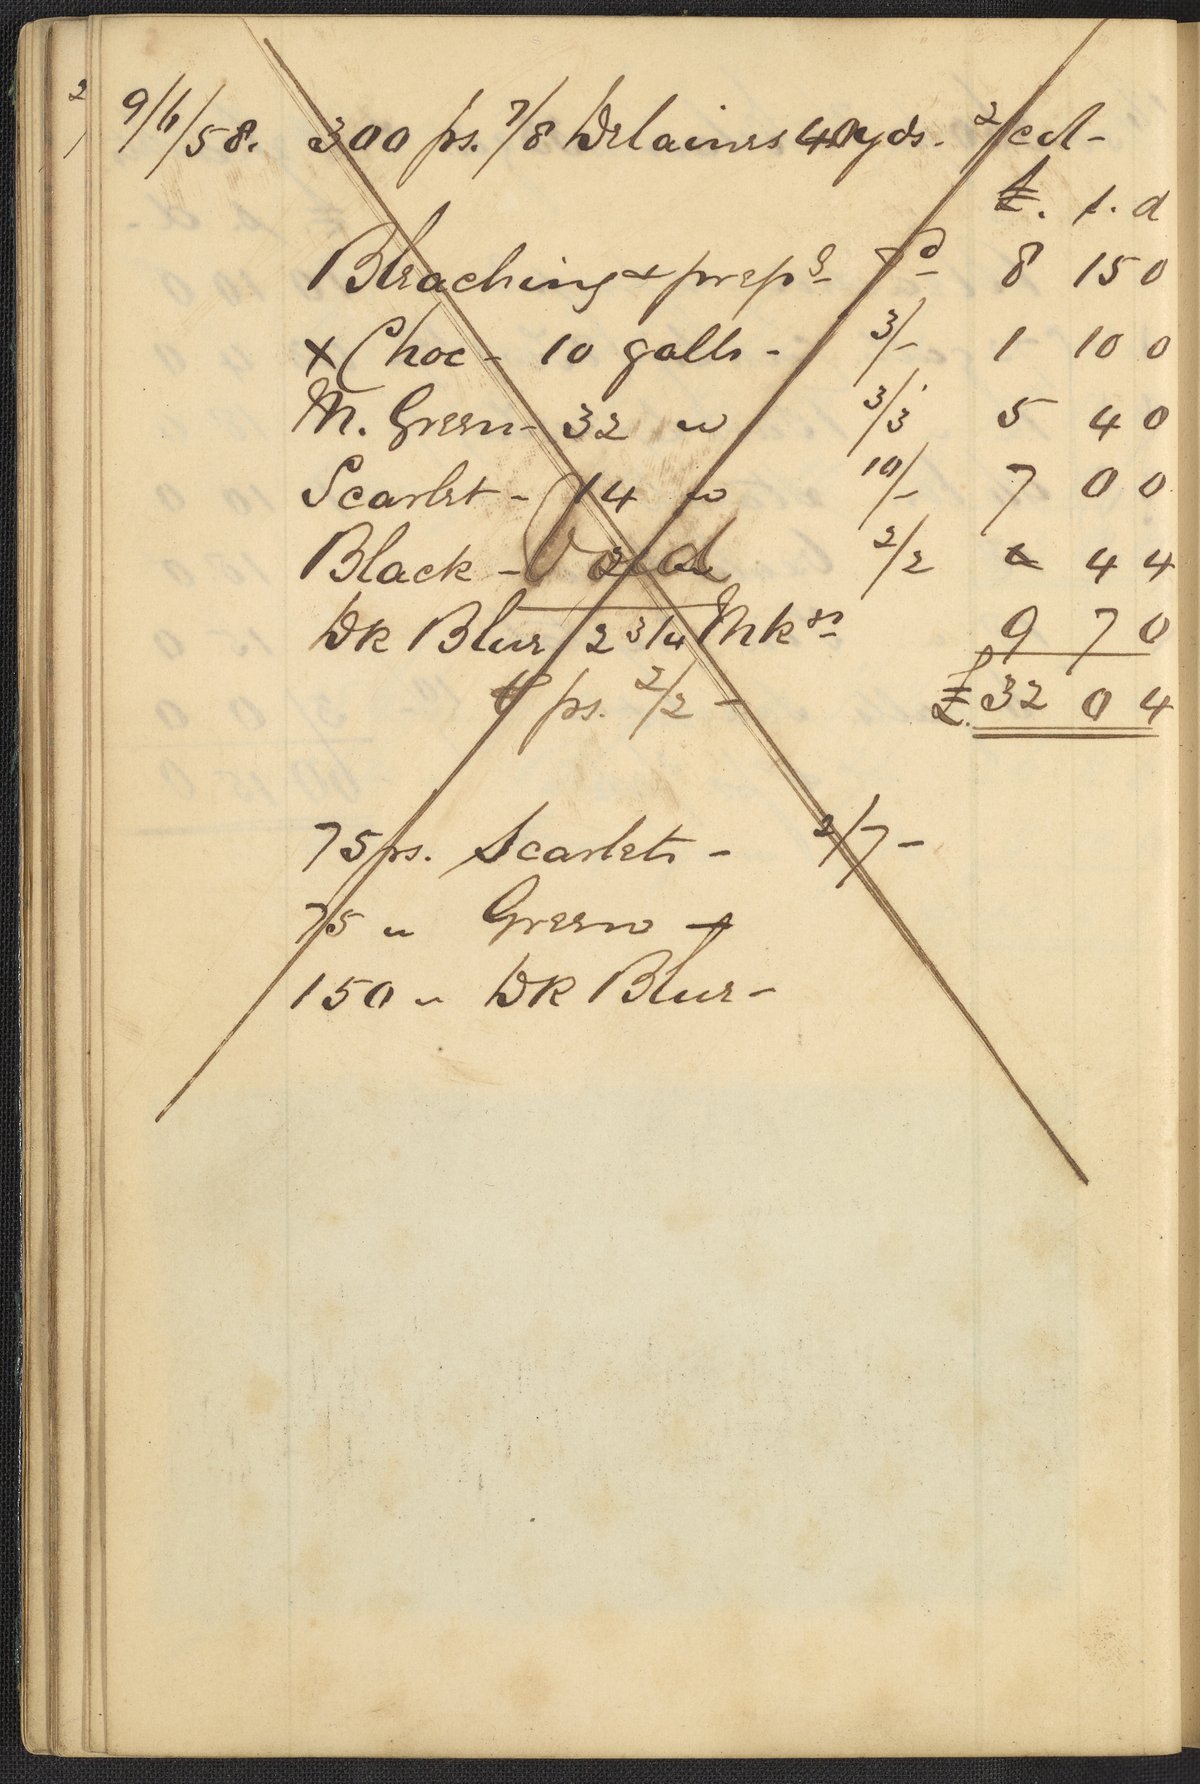 9/6/58. 300 ps. 7/8 Delaines 40 yds. 2/cd-
£. s. d
Bleaching & prepg 7d 8 15 0
x Choc - 10 galls - 3/- 1 10 0
M. Green - 32 " 3/3 5 4 0
Scarlet - 14 " 10/- 7 0 0
Black - 2 " 2/2 4 4
Void
Dk Blue / 2 3/4 Mk 9 7 0
ps. 2/2 - £. 32 0 4
75 ps. Scarlets - 2/7 -
75 " Green +
150 " Dk Blue -